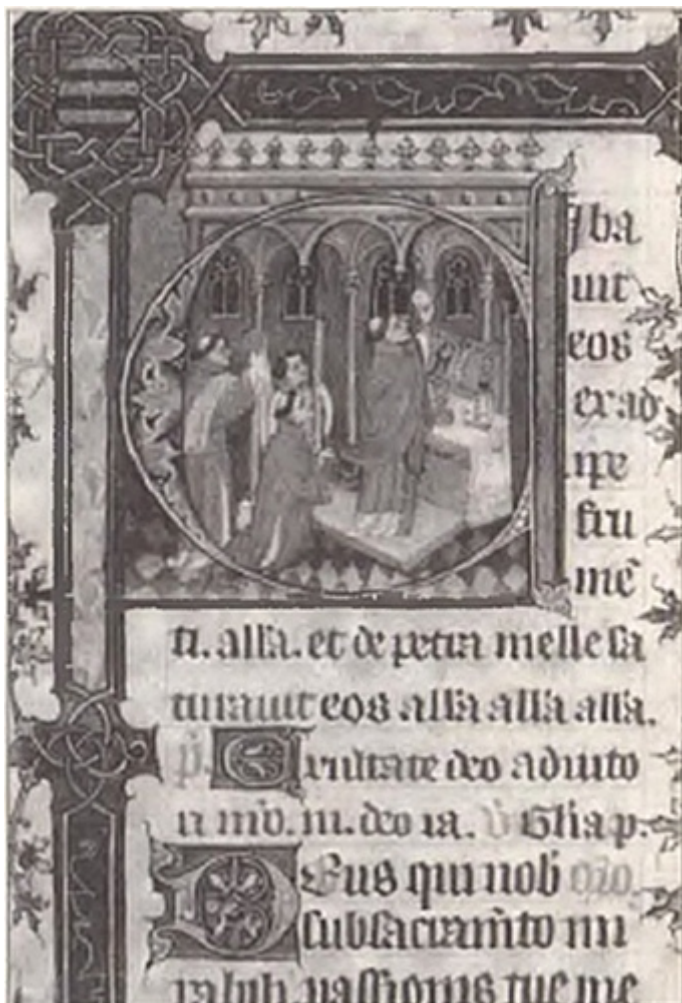 CIba
uit
eos
ex ad
ipe
fru
mē
ti. alla. et de petra melle sa
turauit eos alla alla alla.
p. Exultate deo adiuto
ri nrō. deo ia. v Glia p.
Deus qui nob oro
sub sacramto mi
rabili passionis tue me